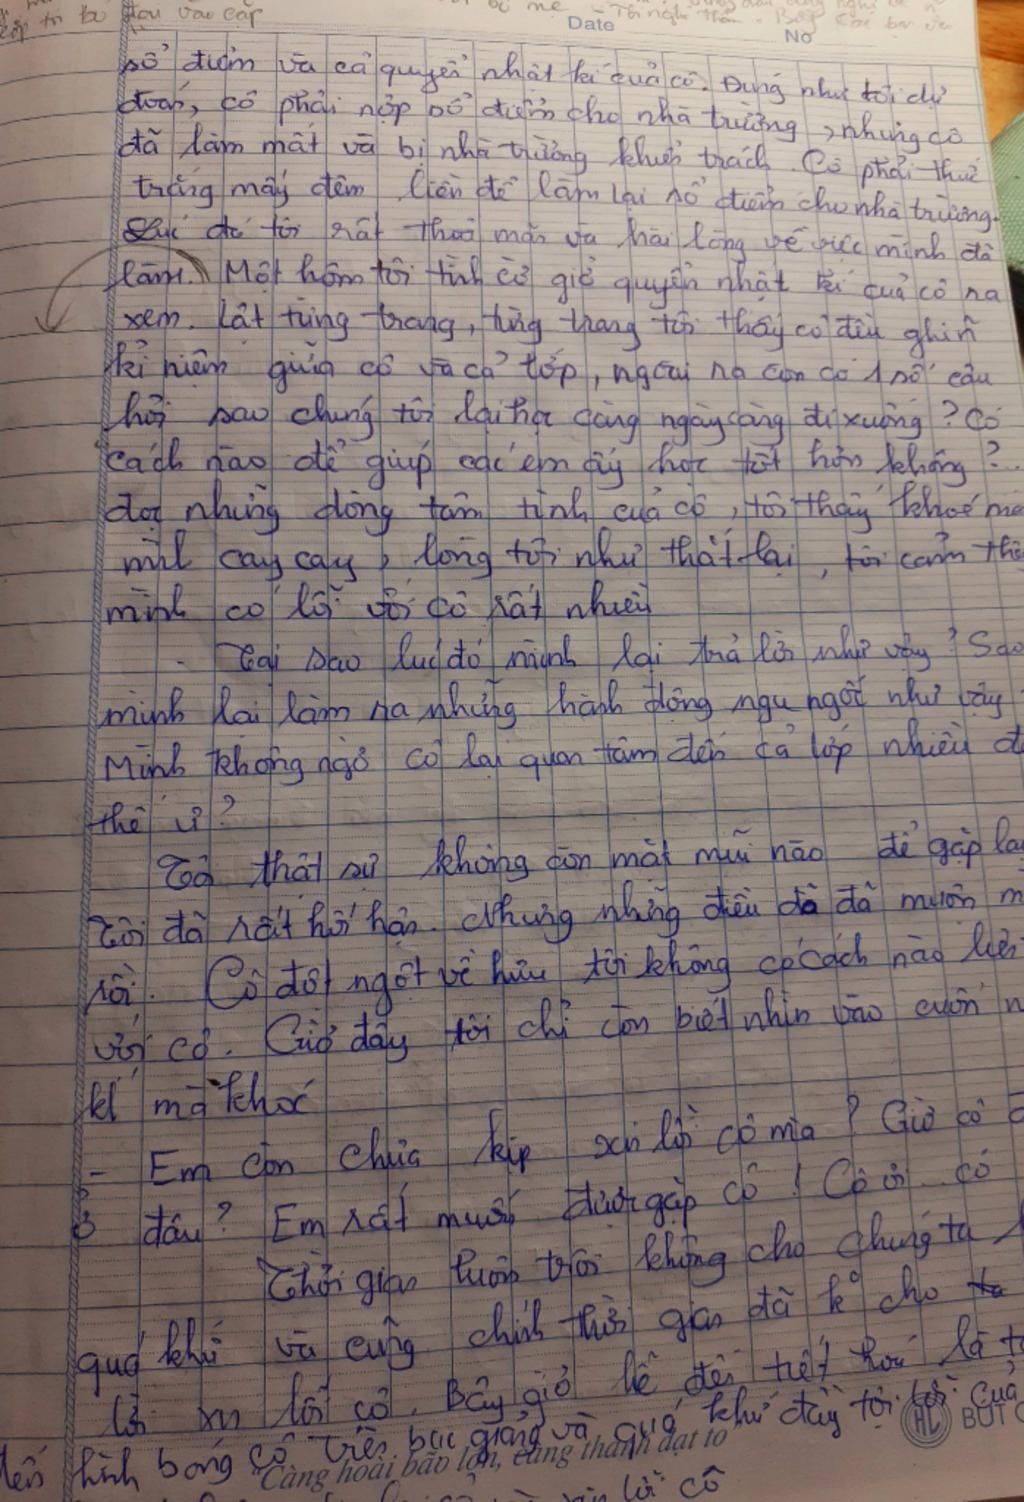 đưa vào cặp
Date
No
sổ điểm và cả quyển nhật kí của cô. Đúng như tôi dự
đoán, cô phải nộp sổ điểm cho nhà trường, nhưng cô
đã làm mất và bị nhà trường khiển trách. Cô phải thức
trắng mấy đêm liền để làm lại sổ điểm cho nhà trường.
Lúc đó tôi rất thoả mãn và hài lòng về việc mình đã
làm. Một hôm tôi tình cờ giở quyển nhật kí của cô ra
xem. Lật từng trang, từng trang tôi thấy cô đều ghi
kỉ niệm giữa cô và cả lớp, ngoài ra còn có 1 số câu
hỏi sao chúng tôi lại học càng ngày càng đi xuống? Có
cách nào để giúp các em ấy học tốt hơn không?..
đọc những dòng tâm tình của cô, tôi thấy khoé
mắt cay cay, lòng tôi như thắt lại, tôi cảm
mình có lỗi với cô rất nhiều
- Tại sao lúc đó mình lại trả lời như vậy? Sao
mình lại làm ra những hành động ngu ngốc như vậy
Mình không ngờ cô lại quan tâm đến cả lớp nhiều
thế ư?
Tôi thật sự không còn mặt mũi nào để gặp lại
Tôi đã rất hối hận. Nhưng những điều đó đã muộn
rồi. Cô đột ngột về hưu tôi không có cách nào liên
với cô. Giờ đây tôi chỉ còn biết nhìn vào cuốn
kí mà khóc
- Em còn chưa kịp xin lỗi cô mà? Giờ cô
ở đâu? Em rất muốn được gặp cô! Cô ơi.. cô
Thời gian luôn trôi không cho chúng ta
quá khứ và cũng chính thời gian đã
lời xin lỗi cô. Bây giờ hễ đến tiết là
đến hình bóng cô trên bục giảng và quá khứ đầy tội lỗi của
Càng hoài bão lớn, càng thành đạt to
lỗi cô